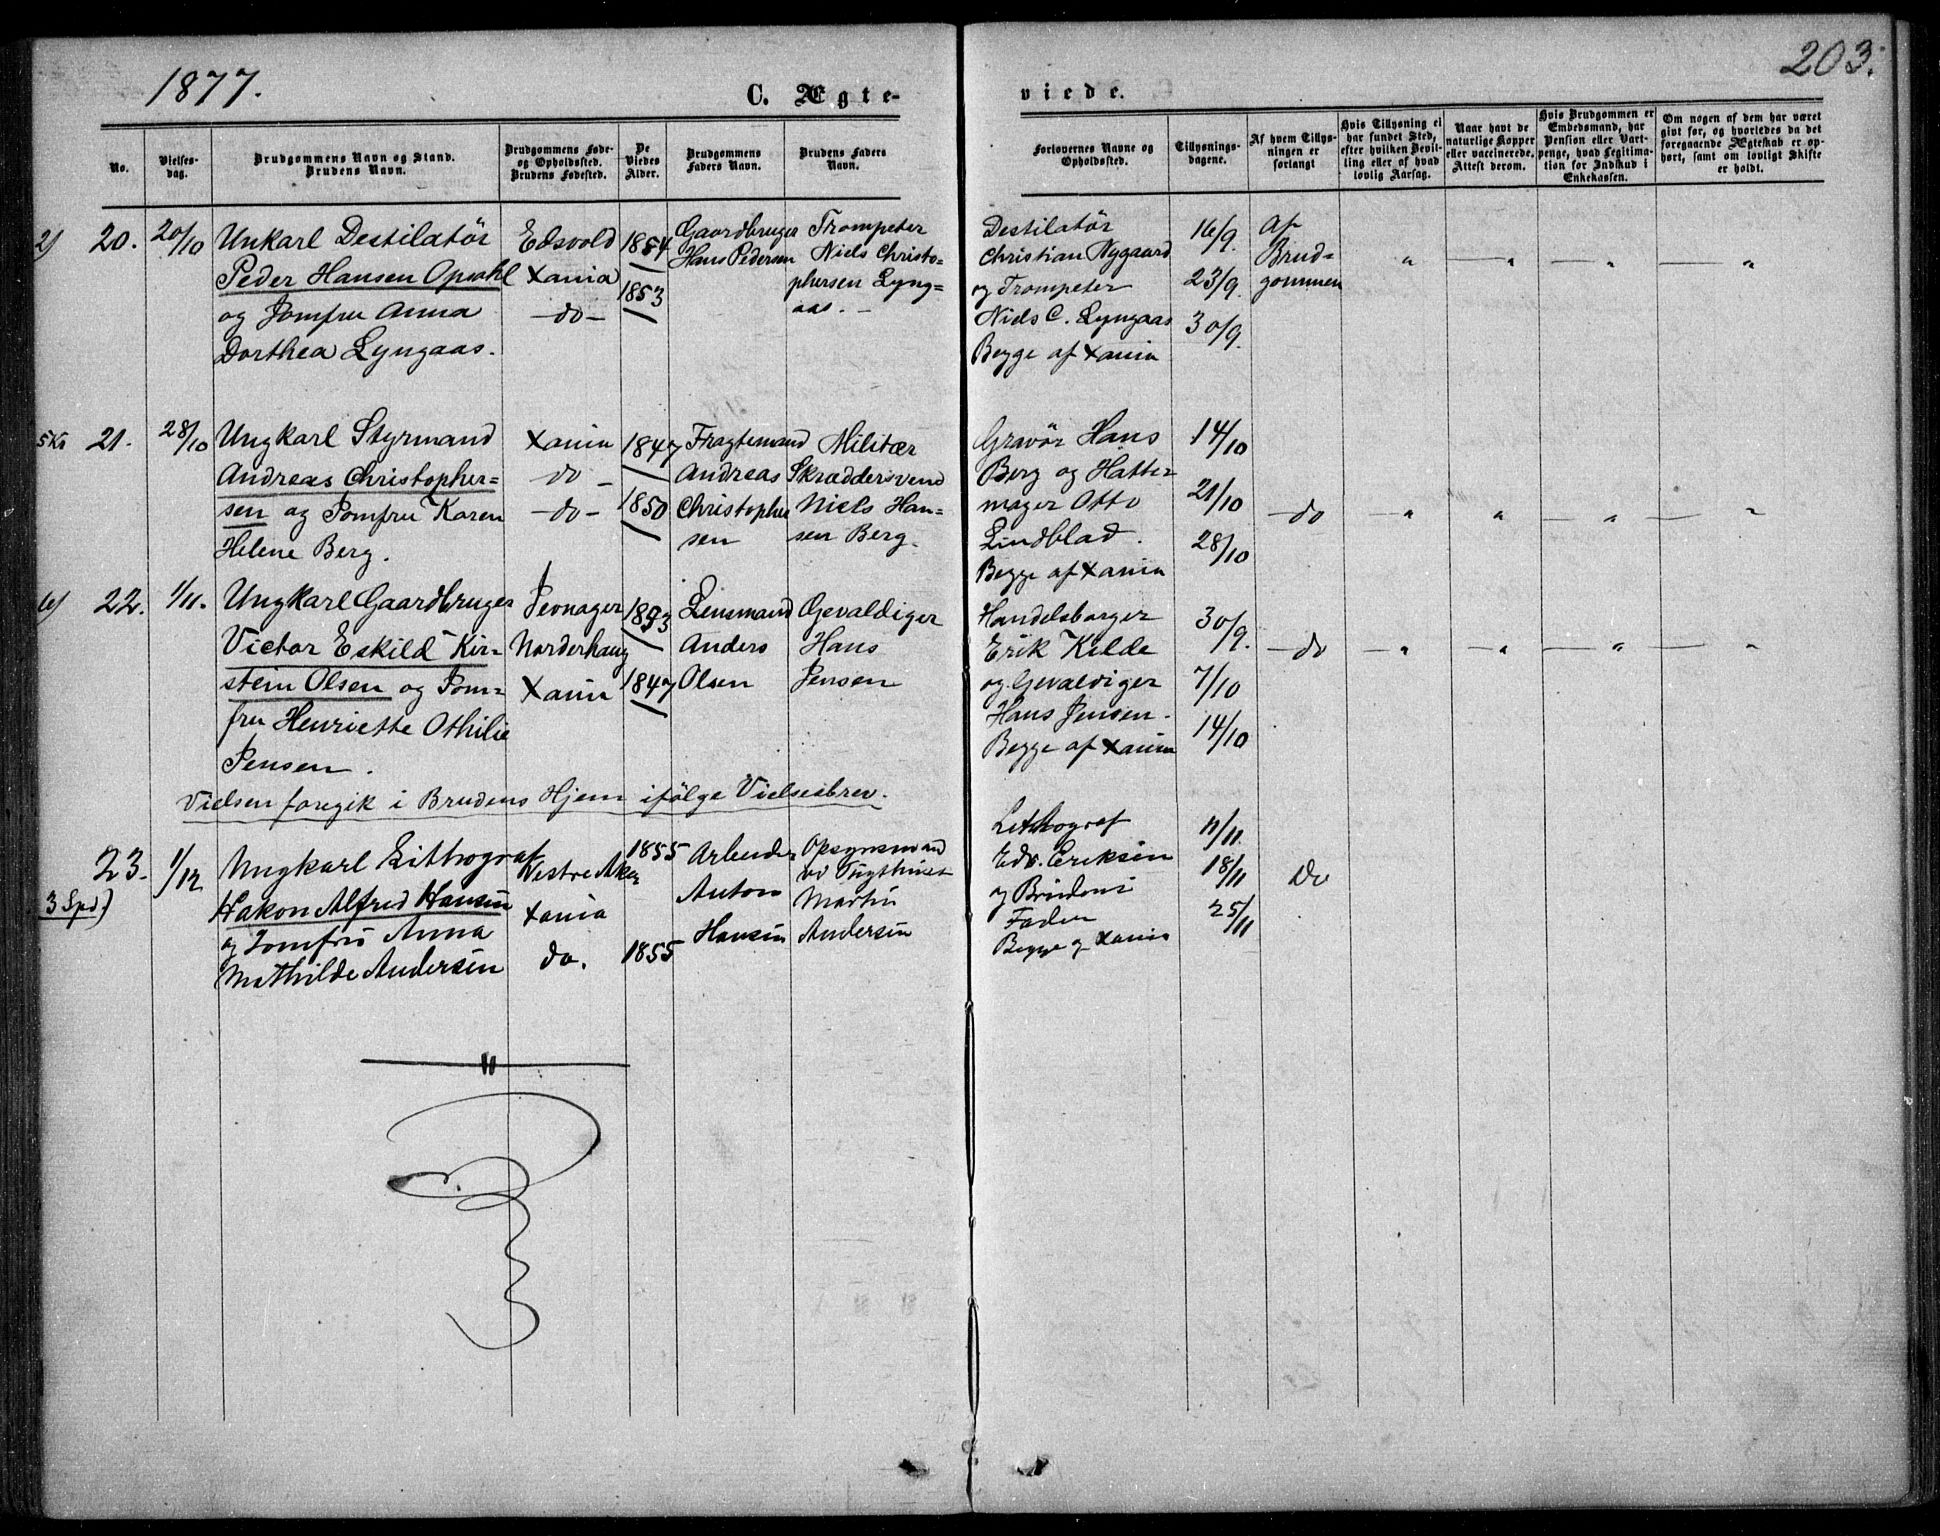 1877.
C. Ægte-
viede.
203.
No.
Vielses-
dag.
Brudgommens Navn og Stand.
Brudens Navn.
Brudgommens Føde-
og Opholdssted.
Brudens Fødested.
De
Viedes
Alder.
Brudgommens
Faders Navn.
Brudens Faders
Navn.
Forlovernes Navne og
Opholdssted.
Tillysnings-
dagene.
Af hvem Tillys-
ningen er
forlangt
Hvis Tillysning ei
har fundet Sted,
efter hvilken Bevil-
ling eller af hvad
lovlig Aarsag.
Naar havt de
naturlige Kopper
eller vaccinerede.
Attest derom.
Hvis Brudgommen er
Embedsmand, har
Pension eller Vart-
penge, hvad Legitima-
tion for Indskud i
Enkekassen.
Om nogen af dem har været
givt før, og hvorledes da det
foregaaende Ægteskab er op-
hørt, samt om lovligt Skifte
er holdt.
2)
20.
20/10
Unkarl Destilatör
Peder Hansen Opsahl
og Jomfru Anna
Dorthea Lyngaas.
Edsvold
Xania
-do-
1854
1853
Gaardbruger
Hans Pedersen
Trompeter
Niels Christo-
phersen Lyng-
aas. -
Destilatör
Christian Nygaard
og Trompeter
Niels C. Lyngaas
Begge af Xania
16/9.
23/9.
30/9.
Af
Brud-
gommen
" — " — " — "
5Kr
21.
28/10
Ungkarl Styrmand
Andreas Christopher-
sen og Jomfru Karen
Helene Berg.
Xania
do -
-do-
1847
1850
Fragtemand
Andreas
Christopher
sen
Militær
Skræddersvend
Niels Han-
sen Berg.
Gravör Hans
Berg og Hatte-
mager Otto
Lindblad.
Begge af Xania
14/10
21/10
28/10
-do — " " — " — "
22.
1/11.
Ungkarl Gaardbruger
Victor Eskild Kir-
stein Olsen og Jom-
fru Henriette Othilie
Jensen.
Jevnager
Norderhaug
Xania
1853
1847
Lensmand
Anders
Olsen
Gevaldiger
Hans
Jensen
Handelsborger
Erik Kilde
og Gevaldiger
Hans Jensen.
Begge af Xania
30/9.
7/10
14/10
-do — " — " — " — "
Vielsen foregik i Brudens Hjem ifölge Vielsesbrev.
23.
3 Spd)
1/12
Ungkarl Lithograf
Hakon Alfred Hansen
og Jomfru Anna
Mathilde Andersen
Vestre Aker
Xania
do.
1855
1855
Arbeider
Anton
Hansen
Opsynsmand
ved Tugthuset
Martin
Andersen
Lithograf
Edv. Eriksen
og Brudens
Fader
Begge af Xania
11/11.
18/11
25/11
Do